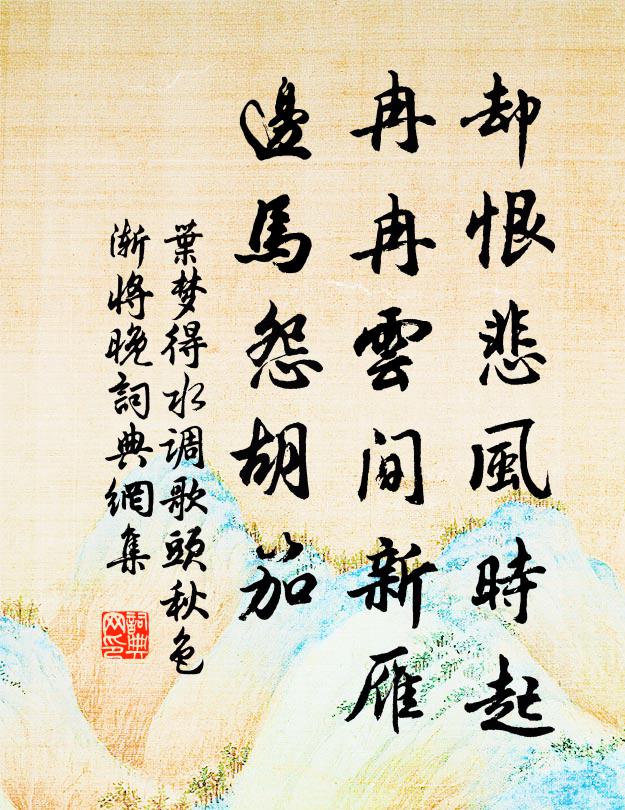 却恨悲風時起
冉冉雲間新雁
邊馬怨胡笳
葉梦得水调歌頭秋色
渐将晚詞典網集
詞典
网印